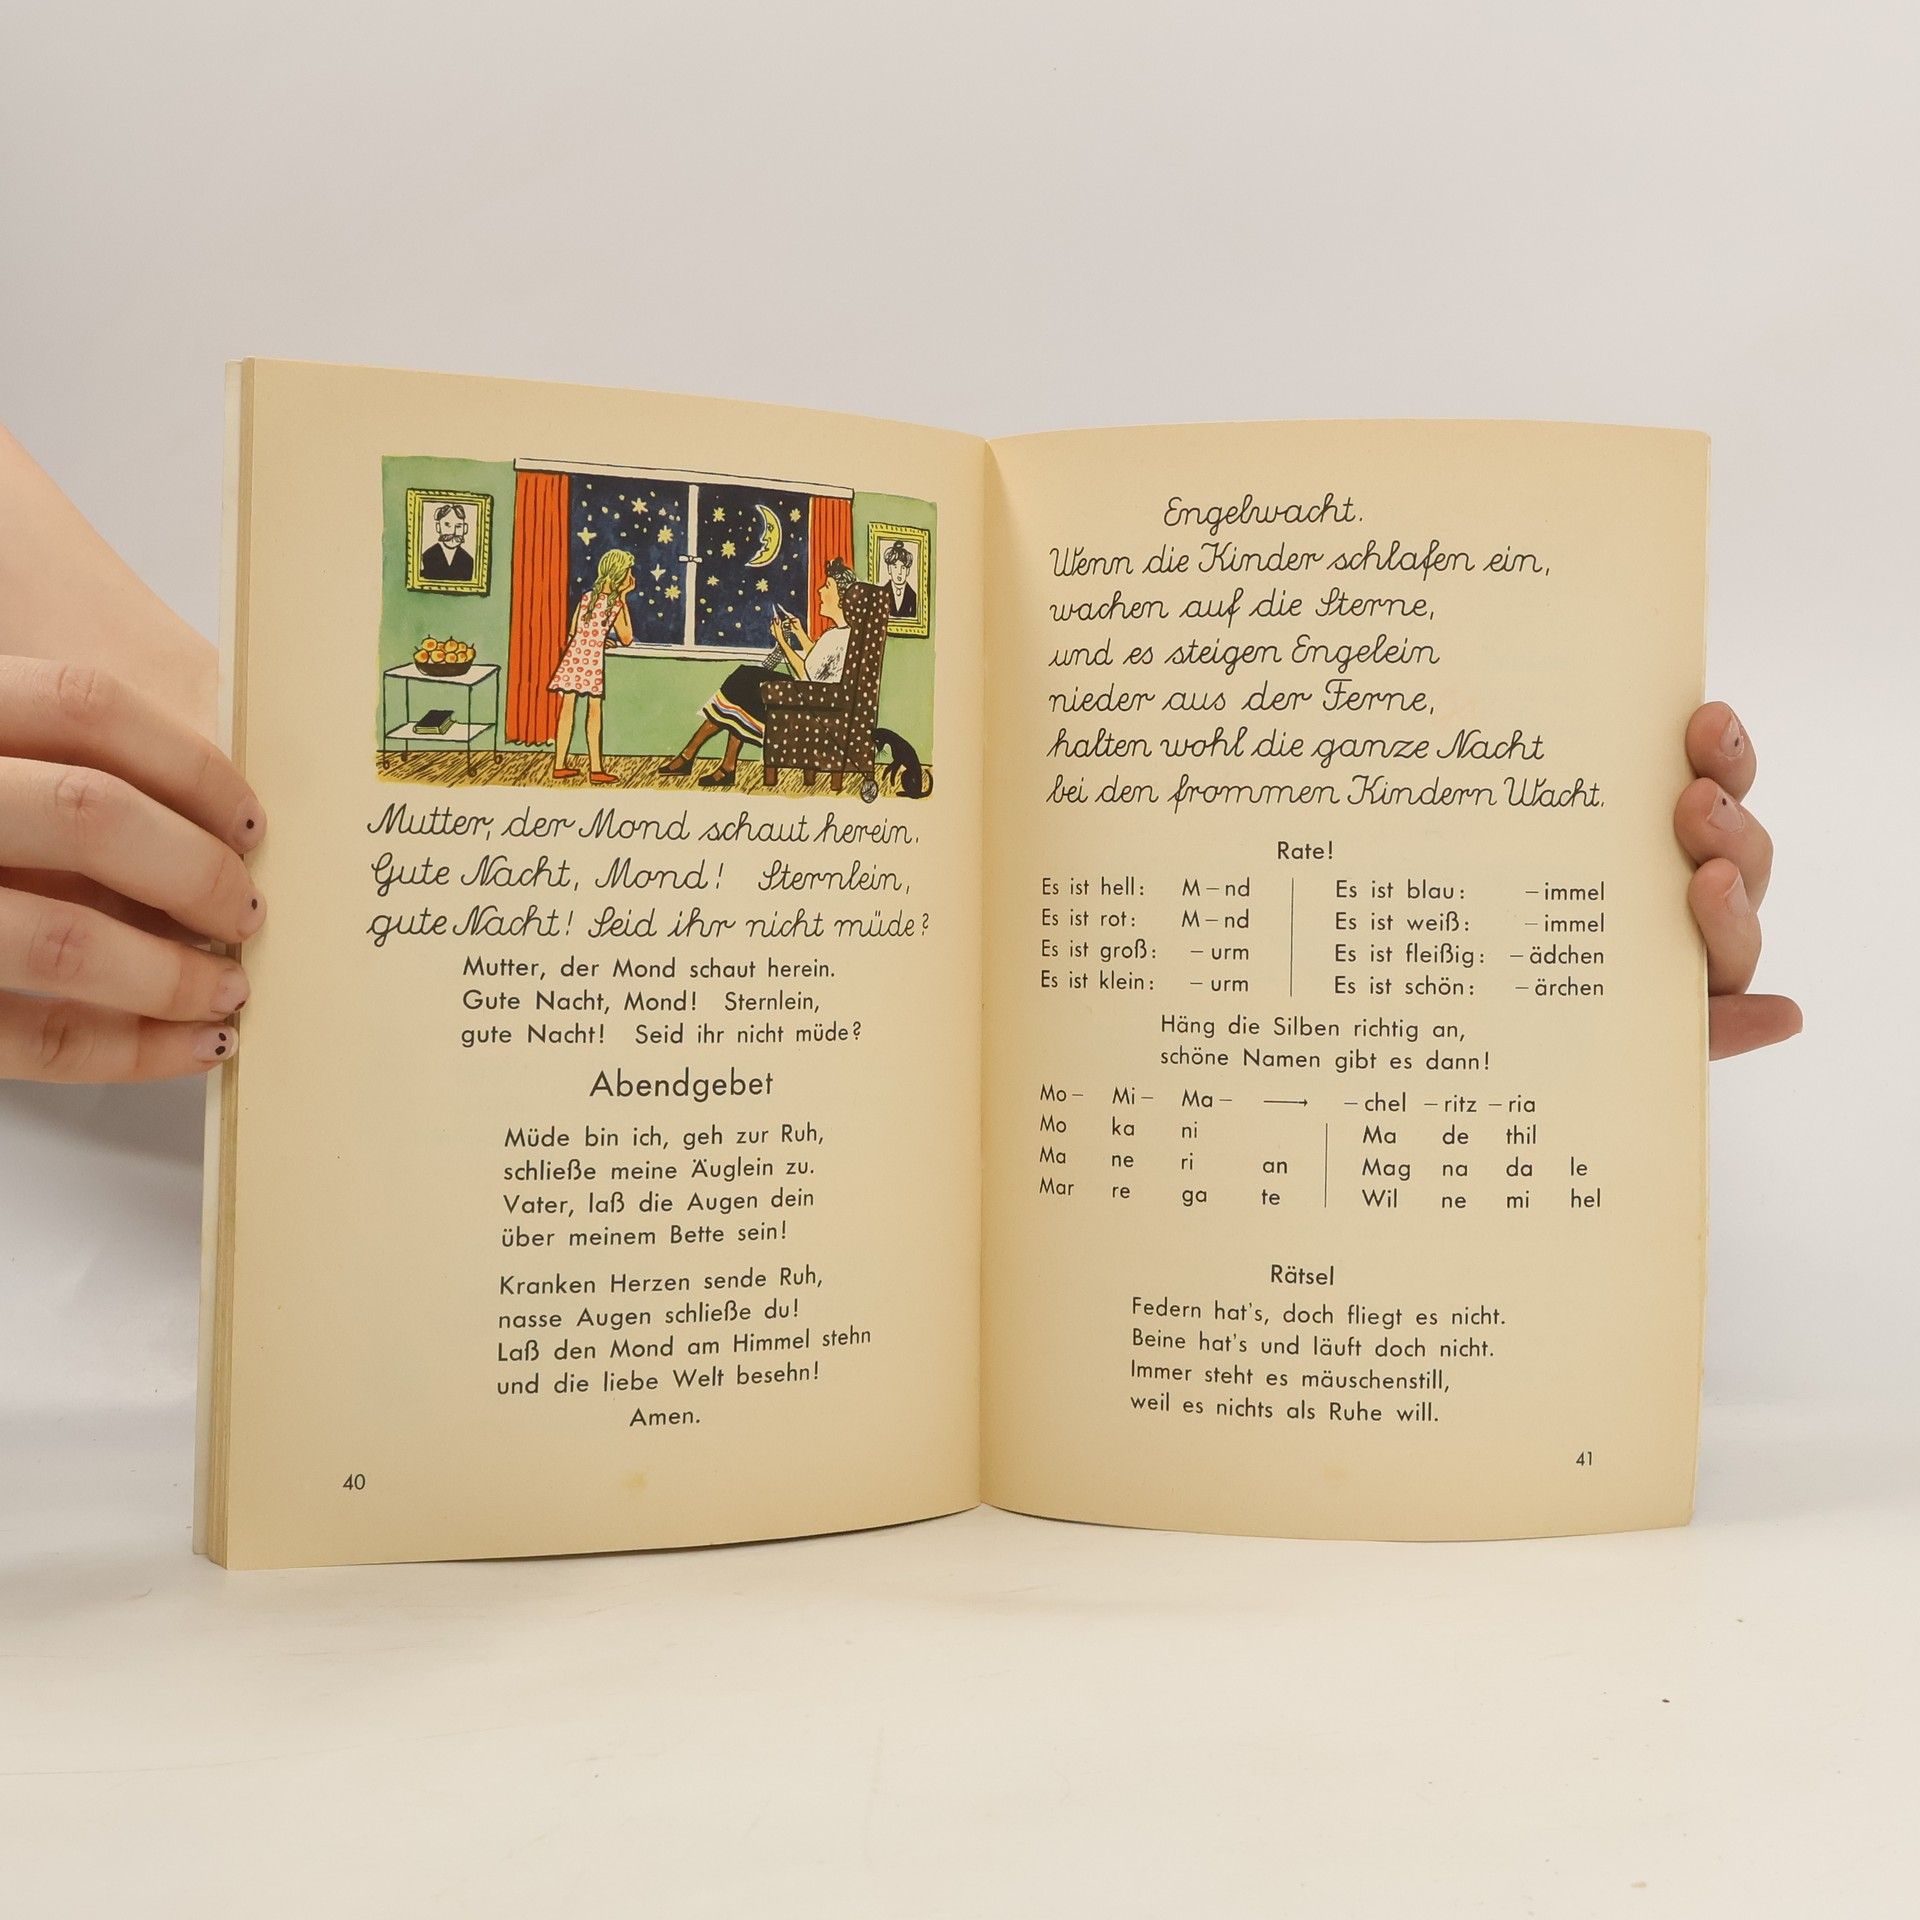 Mutter, der Mond schaut herein.
Gute Nacht, Mond! Sternlein,
gute Nacht! Seid ihr nicht müde?
Mutter, der Mond schaut herein.
Gute Nacht, Mond! Sternlein,
gute Nacht! Seid ihr nicht müde?
Abendgebet
Müde bin ich, geh zur Ruh,
schließe meine Äuglein zu.
Vater, laß die Augen dein
über meinem Bette sein!
Kranken Herzen sende Ruh,
nasse Augen schließe du!
Laß den Mond am Himmel stehn
und die liebe Welt besehn!
Amen.
40
Engelwacht.
Wenn die Kinder schlafen ein,
wachen auf die Sterne,
und es steigen Engelein
nieder aus der Ferne,
halten wohl die ganze Nacht
bei den frommen Kindern Wacht.
Rate!
Es ist hell: M – nd | Es ist blau: – immel
Es ist rot: M – nd | Es ist weiß: – immel
Es ist groß: – urm | Es ist fleißig: – ädchen
Es ist klein: – urm | Es ist schön: – ärchen
Häng die Silben richtig an,
schöne Namen gibt es dann!
Mo – Mi – Ma – → – chel – ritz – ria
Mo ka ni | Ma de thil
Ma ne ri an | Mag na da le
Mar re ga te | Wil ne mi hel
Rätsel
Federn hat's, doch fliegt es nicht.
Beine hat's und läuft doch nicht.
Immer steht es mäuschenstill,
weil es nichts als Ruhe will.
41